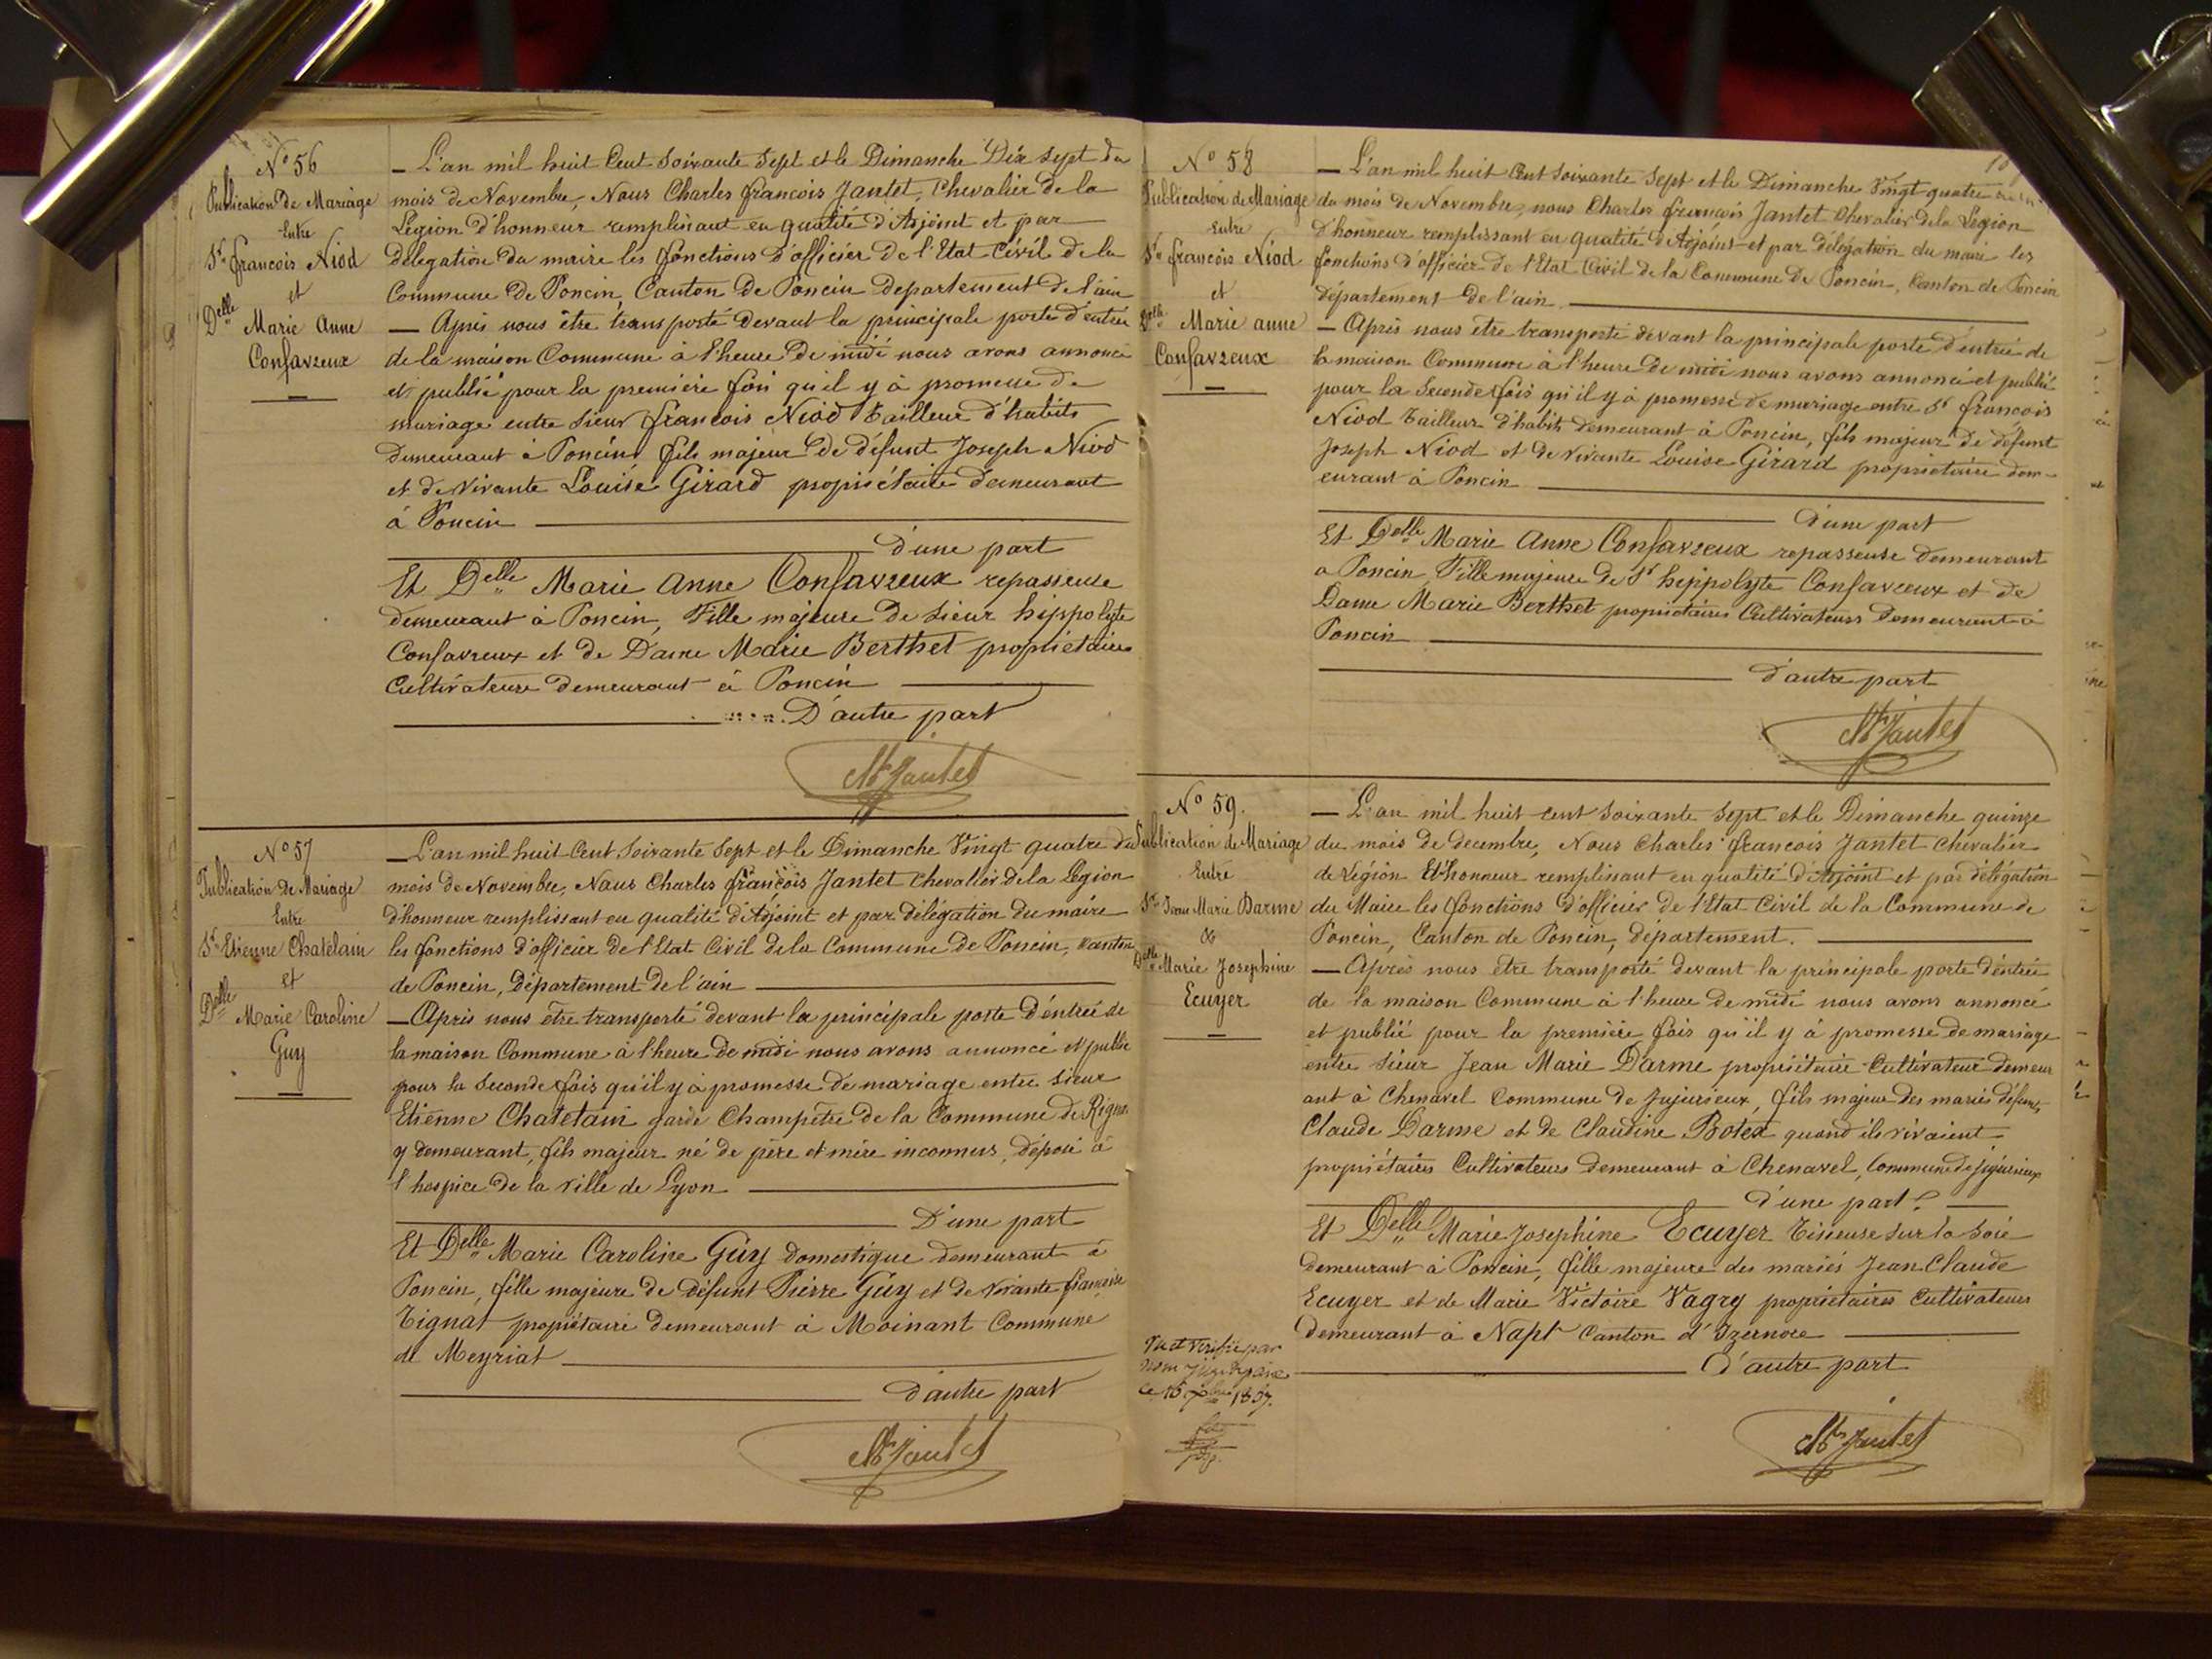 N° 56
Publication de Mariage
Entre
Sr. françois Niod
et
Delle
Marie Anne
Confavreux
— L'an mil huit Cent Soixante Sept et le Dimanche Dix Sept du
mois de Novembre, Nous Charles françois Jantet, Chevalier de la
Légion d'honneur remplissant en qualité d'Adjoint et par
délégation du maire les fonctions d'officier de l'Etat Civil de la
Commune de Poncin, Canton de Poncin departement de l'ain
— Après nous être transporté devant la principale porte d'entrée
de la maison Commune à l'heure de midi nous avons annoncé
et publié pour la première fois qu'il y à promesse de
mariage entre Sieur françois Niod Tailleur d'habits
demeurant à Poncin, fils majeur de défunt Joseph Niod
et de vivante Louise Girard propriétaire demeurant
à Poncin
d'une part
Et Delle Marie Anne Confavreux repasseuse
demeurant à Poncin, Fille majeure de Sieur hippolyte
Confavreux et de Dame Marie Berthet propriétaires
Cultivateurs demeurant à Poncin
D'autre part
Ch Jantet
N° 57
Publication de Mariage
Entre
Sr. Etienne Chatelain
et
Delle
Marie Caroline
Guy
— L'an mil huit Cent Soixante Sept et le Dimanche Vingt quatre du
mois de Novembre, Nous Charles françois Jantet Chevalier de la Légion
d'honneur remplissant en qualité d'Adjoint et par délégation du maire
les fonctions d'officier de l'Etat Civil de la Commune de Poncin, Canton
de Poncin, Département de l'ain
— Après nous être transporté devant la principale porte d'entrée de
la maison Commune à l'heure de midi nous avons annoncé et publié
pour la Seconde fois qu'il y à promesse de mariage entre Sieur
Etienne Chatelain garde Champêtre de la Commune de
y demeurant, fils majeur né de père et mère inconnus, déposé à
l'hospice de la ville de Lyon
D'une part
Et Delle Marie Caroline Guy domestique demeurant à
Poncin, fille majeure de défunt Pierre Guy et de vivante françoise
Tignat propriétaire demeurant à Moinant Commune
de Meyriat
d'autre part
Ch Jantet
N° 58
Publication de Mariage
Entre
Sr. françois Niod
et
Delle Marie anne
Confavreux
— L'an mil huit Cent Soixante Sept et le Dimanche Vingt quatre
du mois de Novembre, nous Charles françois Jantet Chevalier de la Légion
d'honneur remplissant en qualité d'Adjoint et par délégation du maire les
fonctions d'officier de l'Etat Civil de la Commune de Poncin, Canton de Poncin
département de l'ain
— Après nous être transporté devant la principale porte d'entrée de
la maison Commune à l'heure de midi nous avons annoncé et publié
pour la Seconde fois qu'il y à promesse de mariage entre Sr françois
Niod Tailleur d'habits demeurant à Poncin, fils majeur de défunt
Joseph Niod et de vivante Louise Girard propriétaire dem-
eurant à Poncin
d'une part
Et Delle Marie Anne Confavreux repasseuse demeurant
a Poncin, Fille majeure de Sr hippolyte Confavreux et de
Dame Marie Berthet propriétaires Cultivateurs demeurant à
Poncin
d'autre part
Ch Jantet
N° 59.
Publication de Mariage
Entre
Sr. Jean Marie Darme
&
Delle Marie Josephine
Ecuyer
— L'an mil huit cent Soixante Sept et le Dimanche quinze
du mois de decembre, Nous Charles françois Jantet chevalier
de légion d'honneur remplissant en qualité d'Adjoint et par délégation
du Maire les fonctions d'officier de l'Etat Civil de la Commune de
Poncin, Canton de Poncin, département.
— Après nous être transporté devant la principale porte d'entrée
de la maison Commune à l'heure de midi nous avons annoncé
et publié pour la première fois qu'il y à promesse de mariage
entre Sieur Jean Marie Darme propriétaire Cultivateur demeur
ant à Chenavel Commune de Jujurieux, fils majeur des mariés défunts
Claude Darme et de Claudine Botex quand ils vivaient
propriétaires Cultivateurs demeurant à Chenavel, Commune de Jujurieux
d'une part
Et Delle Marie Josephine Ecuyer Tisseuse sur la Soie
demeurant à Poncin, fille majeure des mariés Jean Claude
Ecuyer et de Marie Victoire Vagry propriétaires Cultivateurs
demeurant à Napt Canton d'Izernore
d'autre part
Ch Jantet
Vu et vérifié par
nous Juge de paix